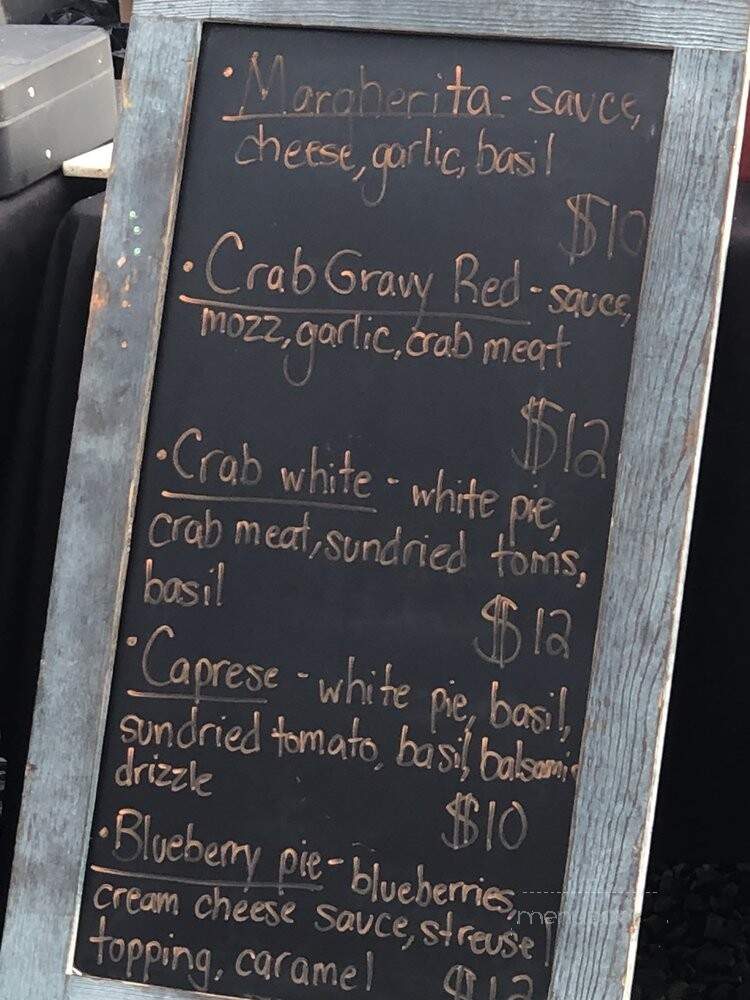 • Margherita - sauce,
cheese, garlic, basil
$10
• Crab Gravy Red - sauce,
mozz, garlic, crab meat
$12
• Crab white - white pie,
crab meat, sundried toms,
basil
$12
• Caprese - white pie, basil,
sundried tomato, basil, balsamic
drizzle
$10
• Blueberry pie - blueberries,
cream cheese sauce, streusel
topping, caramel
$12